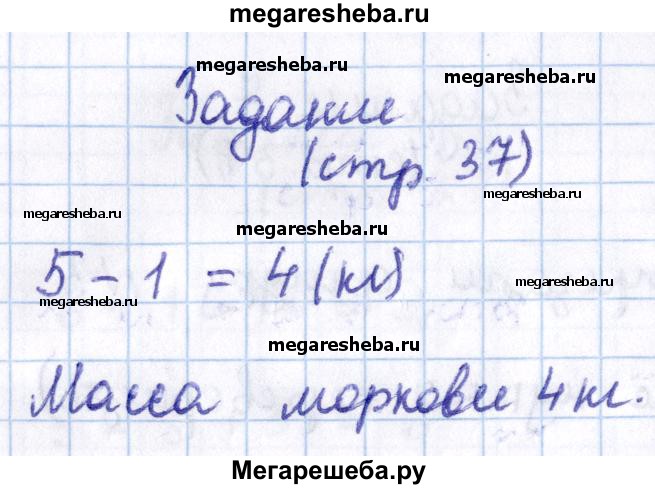 megaresheba.ru
megaresheba.ru megaresheba.ru
Задание
(стр. 37)
megaresheba.ru
megaresheba.ru
megaresheba.ru
5 - 1 = 4 (кг)
megaresheba.ru megaresheba.ru
megaresheba.ru
Масса моркови 4 кг.
Мегарешеба.ру